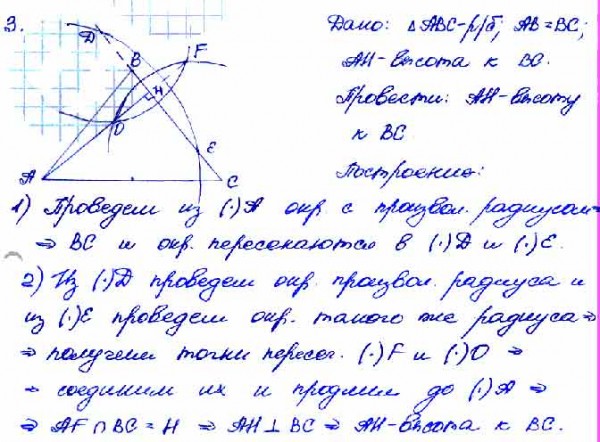 3.
D
F
B
H
O
E
A
C
Дано: △ABC-р/б; AB=BC;
AH-высота к BC.
Провести: AH-высоту
к BC
Построение:
1) Проведем из (·)A окр. с произвол. радиусом⇒
⇒ BC и окр. пересекаются в (·)D и (·)E.
2) Из (·)D проведем окр. произвол. радиуса и
из (·)E проведем окр. такого же радиуса⇒
⇒ получем точки пересеч. (·)F и (·)O ⇒
⇒ соединим их и продлим до (·)A ⇒
⇒ AF∩BC=H ⇒ AH⊥BC ⇒ AH-высота к BC.